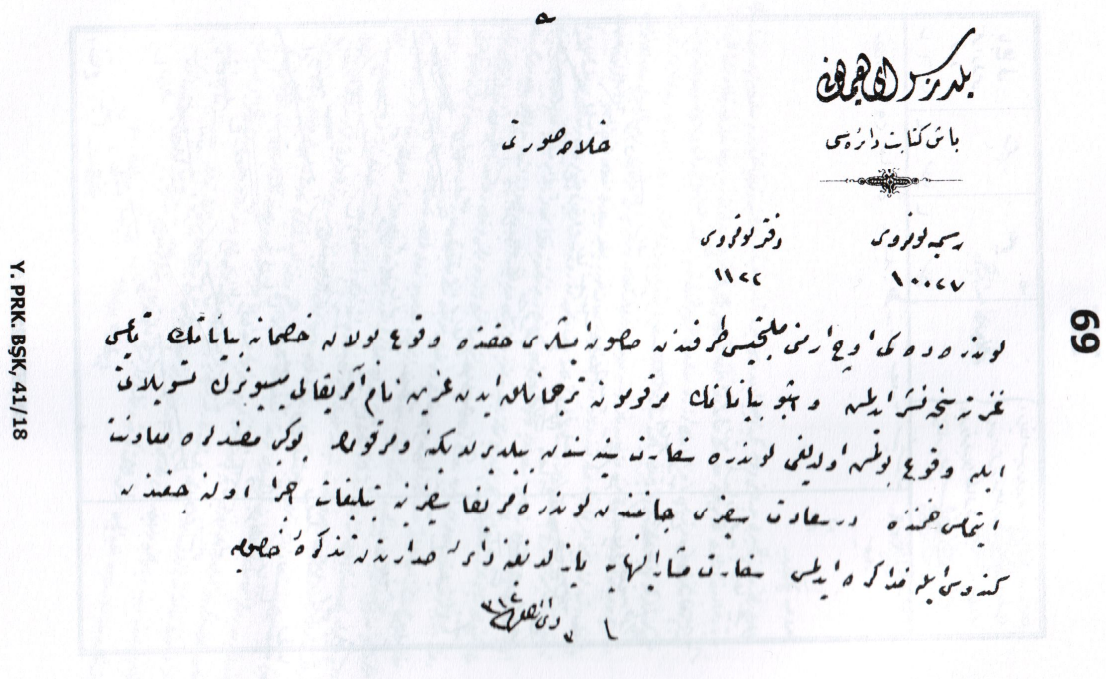 يلديز سراى همايونى
باش كتابت دائره‌سى
خلاصه صورتى
رسميه نومروسى
دفتر نومروسى
١٠٠٢٧
١١٢٢
لوندره‌ده كى اوچ ارمنى ملتجيسى طرفندن صاصون ايشلرى حقنده وقوع بولان خصمانه بياناتك تايمس
غزته‌سنجه نشر ايدلمش واشبو بياناتك مرقومونه ترجمانلق ايدن غرين نام آمريقالى ميسيونرك تسويلاتى
ايله وقوع بولمش اولديغى لوندره سفارت سنيه‌سندن بيلديرلديكندن مرقومك بوكبى مفسدلره معاونت
ايتمامسى ضمننده درسعادت سفيرى جانبندن لوندره آمريقا سفيرينه تبليغات اجرا اولنمق حقنده
كندوسيله مذاكره ايدلمسى سفارت مشار اليهايه يازلديغنه دائر صدارتك تذكره خصوصيه
٣١٢
Y. PRK. BŞK, 41/18
69